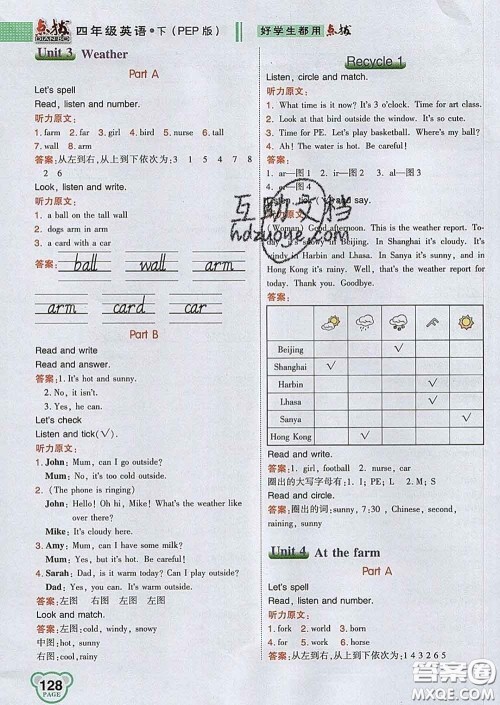 点拨 四年级英语·下(PEP版)
DIANBO
好学生都用 点拨
Unit 3 Weather
Part A
Let's spell
Read, listen and number.
听力原文:
1. farm 2. far 3. girl 4. bird 5. nurse 6. tall
7. wall 8. arm
答案:从左到右,从上到下依次为:3 1 5 4 7 8
2 6
Look, listen and write.
听力原文:
1. a ball on the tall wall
2. dogs arm in arm
3. a card with a car
答案: ball wall arm
arm card car
Part B
Read and write
Read and answer.
答案:1. It's hot and sunny.
2. No, it isn't.
3. Yes, he can.
Let's check
Listen and tick(√).
听力原文:
1. John: Mum, can I go outside?
Mum: No, it's too cold outside.
2. (The phone is ringing)
John: Hello! Oh hi, Mike! What's the weather like
over there?
Mike: It's cloudy here.
3. Amy: Mum, can I have some milk?
Mum: Yes, but it's hot. Be careful!
4. Sarah: Dad, is it warm today? Can I play outside?
Dad: Yes, you can. It's warm outside.
答案:左图 右图 左图 左图
Look and write.
答案:左图:cold, windy, snowy
中图:hot, sunny
右图:cool,rainy
128
PAGE
Recycle 1
Listen, circle and match.
听力原文:
1. What time is it now? It's 3 o'clock. Time for art class.
2. Look at that bird outside the window. It's so cute.
3. Time for PE. Let's play basketball. Where's my ball?
4. Ah! The water is hot. Be careful!
答案:1. ar—图1 2. ir—图2 3. al—图3
4. er—图4
Listen, tick (√) and say.
听力原文:
(Woman) Good afternoon. This is the weather report. To-
day it's snowy in Beijing. In Shanghai it's cloudy. It's
windy in Harbin and Lhasa. In Sanya it's sunny, and in
Hong Kong it's rainy. That's the weather report for
today. Thank you. Goodbye.
答案:
Beijing √
Shanghai √
Harbin √
Lhasa √
Sanya √
Hong Kong √
Read and write.
答案:1. girl, football 2. nurse, car
圈出的大写字母有:1. I;PE;L 2. M;S
Read and circle.
答案:圈出的词:sunny, 7:30, Chinese, second,
raining, sunny
Unit 4 At the farm
Part A
Let's spell
Read, listen and number.
听力原文:
1. fork 2. world 3. born
4. for 5. work 6. horse
答案:从左到右,从上到下依次为:1 4 3 2 6 5
互助文档
hdzuoye.com
答案圈
MXQE.COM